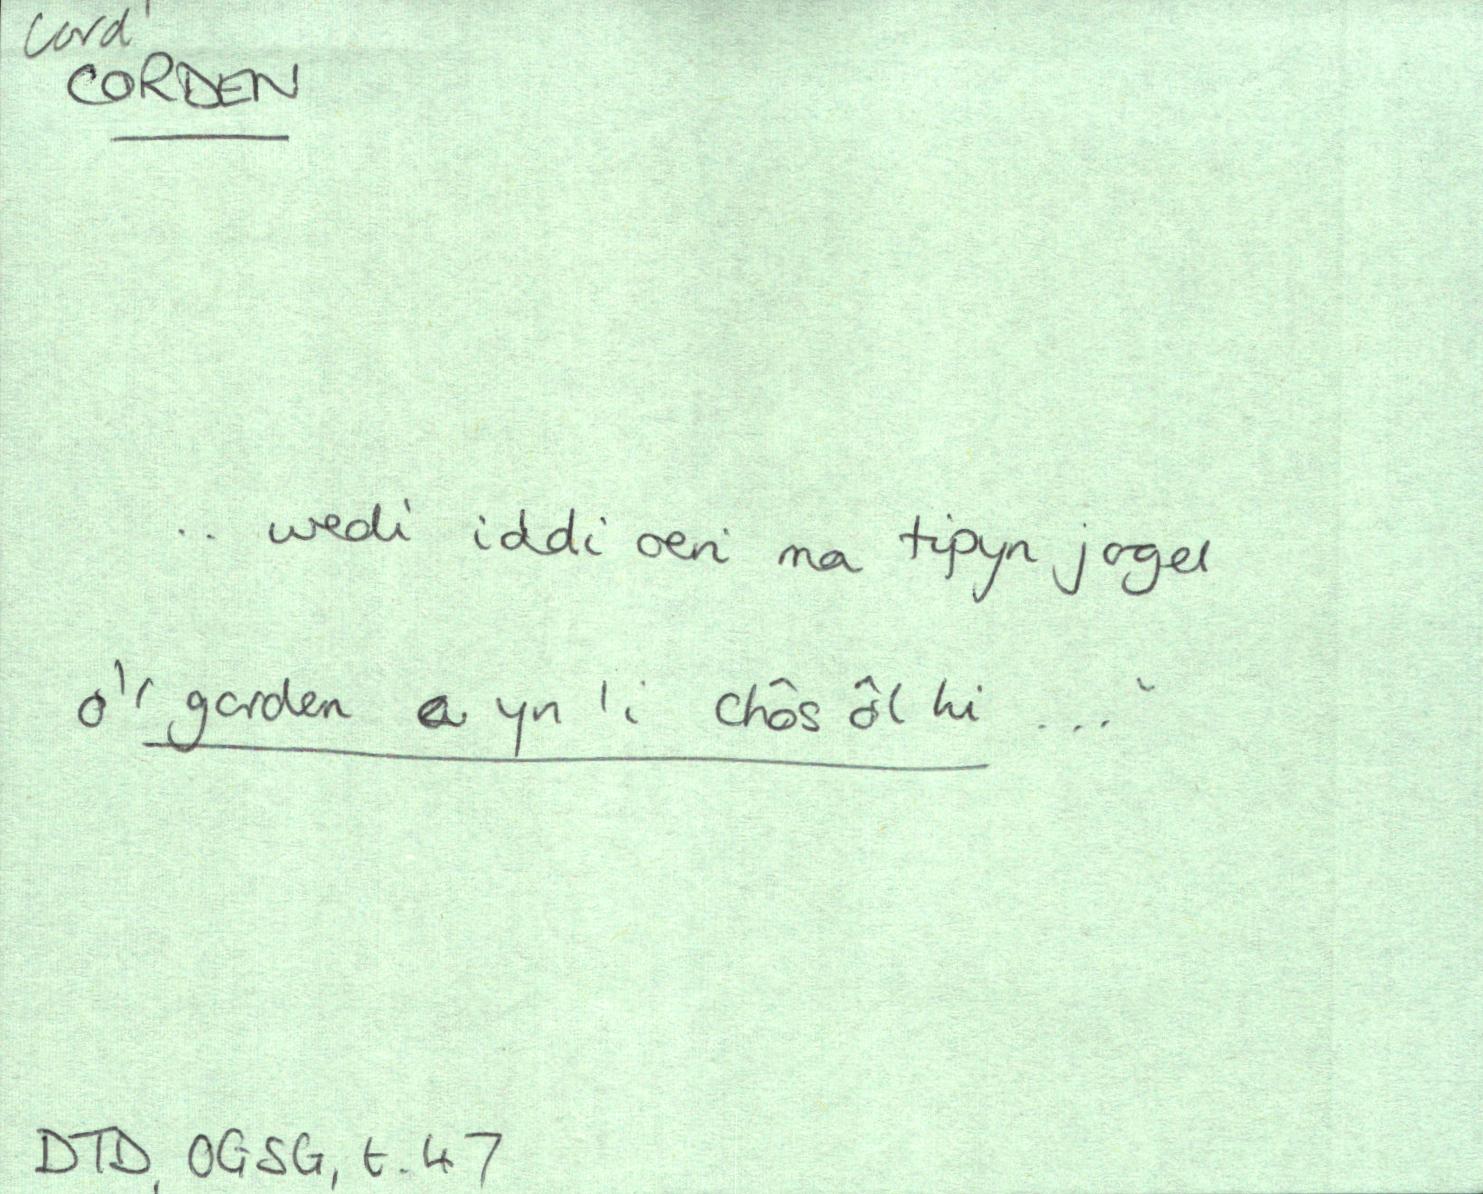 cord'
CORDEN
.. wedi iddi oeri ma tipyn jogel
o'r gorden a yn 'i chôs ôl hi ...'
DTD, OGSG, t.47